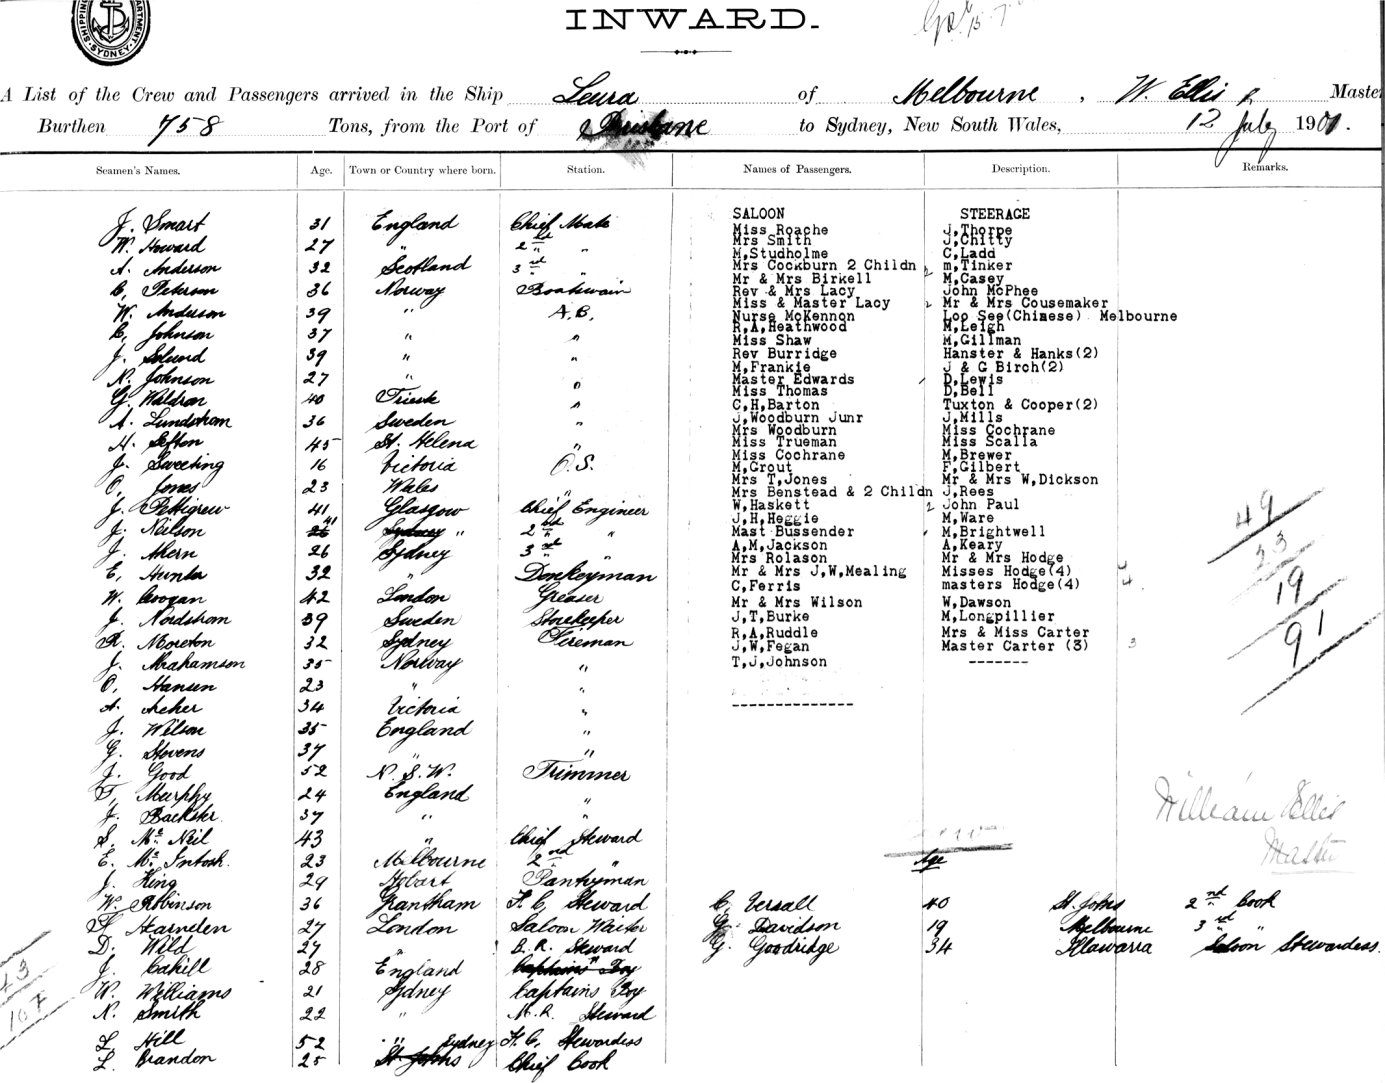 SHIPPING DEPARTMENT SYDNEY
INWARD.
A List of the Crew and Passengers arrived in the Ship Leura of Melbourne, W. Ellis Master
Burthen 758 Tons, from the Port of Brisbane to Sydney, New South Wales, 12 July 1901.
Seamen's Names. Age. Town or Country where born. Station. Names of Passengers. Description. Remarks.
J. Smart 31 England Chief Mate
W. Howard 27 " 2nd "
A. Anderson 32 Scotland 3rd "
C. Peterson 36 Norway Boatswain
W. Anderson 39 " A.B.
C. Johnson 37 " "
J. 39 " "
N. Johnson 27 " "
G. Waldron 40 Trieste "
A. Lundstrom 36 Sweden "
H. Sefton 45 St. Helena "
J. Sweeting 16 Victoria O.S.
O. Jones 23 Wales "
J. Pettigrew 41 Glasgow Chief Engineer
J. Neilson 26 41 Sydney " 2nd "
J. Ahern 26 Sydney 3rd "
E. Hunter 32 " Donkeyman
W. Grogan 42 London Greaser
J. Nordstrom 39 Sweden Storekeeper
R. Moreton 32 Sydney Fireman
J. Abrahamson 35 Norway "
O. Hansen 23 " "
A. Archer 34 Victoria "
J. Wilson 35 England "
G. Stevens 37 " "
J. Good 52 N.S.W. Trimmer
T. Murphy 24 England "
J. Backster 37 " "
S. McNeil 43 " Chief Steward
E. McIntosh. 23 Melbourne 2nd "
J. King 29 Hobart Pantryman
W. Robinson 36 Grantham F.C. Steward
F. Hearnden 27 London Saloon Waiter
D. Wild 27 " B.R. Steward
J. Cahill 28 England Captains Boy
W. Williams 21 Sydney Captains Boy
N. Smith 22 " M.R. Steward
L. Hill 52 " Sydney F.C. Stewardess
L. Brandon 25 St Johns Chief Cook
SALOON
Miss Roache
Mrs Smith
M,Studholme
Mrs Cockburn 2 Childn
Mr & Mrs Birkell
Rev & Mrs Lacy
Miss & Master Lacy
Nurse McKennon
R,A,Heathwood
Miss Shaw
Rev Burridge
M,Frankie
Master Edwards
Miss Thomas
C,H,Barton
J,Woodburn Junr
Mrs Woodburn
Miss Trueman
Miss Cochrane
M,Grout
Mrs T,Jones
Mrs Benstead & 2 Childn
W,Haskett
J,H,Heggie
Mast Bussender
A,M,Jackson
Mrs Rolason
Mr & Mrs J,W,Mealing
C,Ferris
Mr & Mrs Wilson
J,T,Burke
R,A,Ruddle
J,W,Fegan
T,J,Johnson
STEERAGE
J,Thorpe
J,Chitty
C,Ladd
m,Tinker
M,Casey
John McPhee
Mr & Mrs Cousemaker
Loo See(Chinese) Melbourne
M,Leigh
M,Gillman
Hanster & Hanks(2)
J & G Birch(2)
D,Lewis
D,Bell
Tuxton & Cooper(2)
J,Mills
Miss Cochrane
Miss Scalla
M,Brewer
F,Gilbert
Mr & Mrs W,Dickson
J,Rees
John Paul
M,Ware
M,Brightwell
A,Keary
Mr & Mrs Hodge
Misses Hodge(4)
masters Hodge(4)
W,Dawson
M,Longpillier
Mrs & Miss Carter
Master Carter (3)
49
23
19
91
William Ellis
Master
Age
C. Versall 40 St. Johns 2nd Cook
G. Davidson 19 Melbourne 3rd "
G. Goodridge 34 Illawarra Saloon Stewardess.
43
107